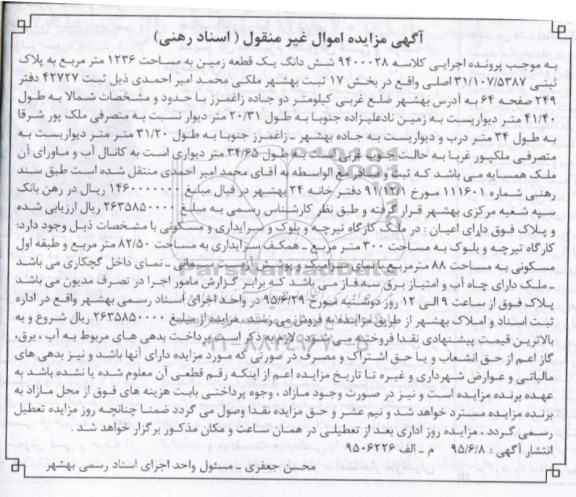 آگهی مزایده اموال غیر منقول ( اسناد رهنی)
به موجب پرونده اجرایی کلاسه ۹۴۰۰۰۲۸ شش دانگ یک قطعه زمین به مساحت ۱۲۳۶ متر مربع به پلاک
ثبتی ۳۱/۱۰۷/۵۳۸۷ اصلی واقع در بخش ۱۷ ثبت بهشهر ملکی محمد امیر احمدی ذیل ثبت ۴۲۷۲۷ دفتر
۲۴۹ صفحه ۶۴ به آدرس بهشهر ضلع غربی کیلومتر دو جاده زاغمرز با حدود و مشخصات شمالا به طول
۴۱/۴۰ متر دیواریست به زمین نادعلیزاده جنوبا به طول ۲۰/۳۱ متر دیوار نسبت به متصرفی ملک پور شرقا
به طول ۳۴ متر درب و دیواریست به جاده بهشهر ـ زاغمرز جنوبا به طول ۳۱/۲۰ متر متر دیواریست به
متصرفی ملکپور غربا به حالت جنوب غربی است به طول ۳۴/۶۵ متر دیواری است به کانال آب و ماورای آن
ملک همسایه می باشد که ثبت و سند مع الواسطه به آقای محمد امیر احمدی منتقل شده است طبق سند
رهنی شماره ۱۱۱۶۰۱ مورخ ۹۱/۱۲/۱ دفتر خانه ۲۴ بهشهر در قبال مبلغ ۱۴۶۰۰۰۰۰۰۰ ریال در رهن بانک
سپه شعبه مرکزی بهشهر قرار گرفته و طبق نظر کارشناس رسمی به مبلغ ۲۶۳۵۸۵۰۰۰۰ ریال ارزیابی شده
و پلاک فوق دارای اعیان : در ملک کارگاه تیرچه و بلوک و سرایداری و مسکونی با مشخصات ذیل وجود دارد:
کارگاه تیرچه و بلوک به مساحت ۳۰۰ متر مربع ـ همکف سرایداری به مساحت ۸۲/۵۰ متر مربع و طبقه اول
مسکونی به مساحت ۸۸ مترمربع با نمای و پوشش سیمانی ـ نمای داخل گچکاری می باشد
ـ ملک دارای چاه آب و امتیاز برق سه فاز می باشد که برابر گزارش مامور اجرا در تصرف مدیون می باشد
پلاک فوق از ساعت ۹ الی ۱۲ روز دوشنبه مورخ ۹۵/۶/۲۹ در واحد اجرای اسناد رسمی بهشهر واقع در اداره
ثبت اسناد و املاک بهشهر از طریق مزایده به فروش می رسد . مزایده از مبلغ ۲۶۳۵۸۵۰۰۰۰ ریال شروع و به
بالاترین قیمت پیشنهادی نقدا فروخته می شود . لازم به ذکر است پرداخت بدهی های مربوط به آب ، برق،
گاز اعم از حق انشعاب و یا حق اشتراک و مصرف در صورتی که مورد مزایده دارای آنها باشد و نیز بدهی های
مالیاتی و عوارض شهرداری و غیره تا تاریخ مزایده اعم از اینکه رقم قطعی آن معلوم شده یا نشده باشد به
عهده برنده مزایده است و نیز در صورت وجود مازاد ، وجوه پرداختی بابت هزینه های فوق از محل مازاد به
برنده مزایده مسترد خواهد شد و نیم عشر و حق مزایده نقدا وصول می گردد ضمنا چنانچه روز مزایده تعطیل
رسمی گردد ، مزایده روز اداری بعد از تعطیلی در همان ساعت و مکان مذکور برگزار خواهد شد .
انتشار آگهی : ۹۵/۶/۸ م ـ الف ۹۵۰۶۲۲۶
محسن جعفری ـ مسئول واحد اجرای اسناد رسمی بهشهر